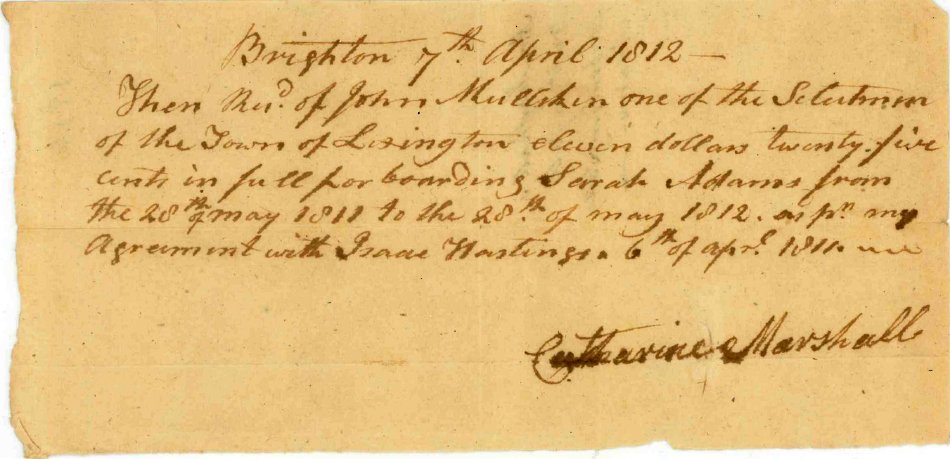 Brighton 7th. April 1812 —
Then Recd. of John Mulliken one of the Selectmen
of the Town of Lexington eleven dollars twenty five
cents in full for boarding Sarah Adams from
the 28th of may 1811 to the 28th. of may 1812. as pr. my
Agreement with Isaac Hastings. 6th of aprl. 1811.
Catharine Marshall